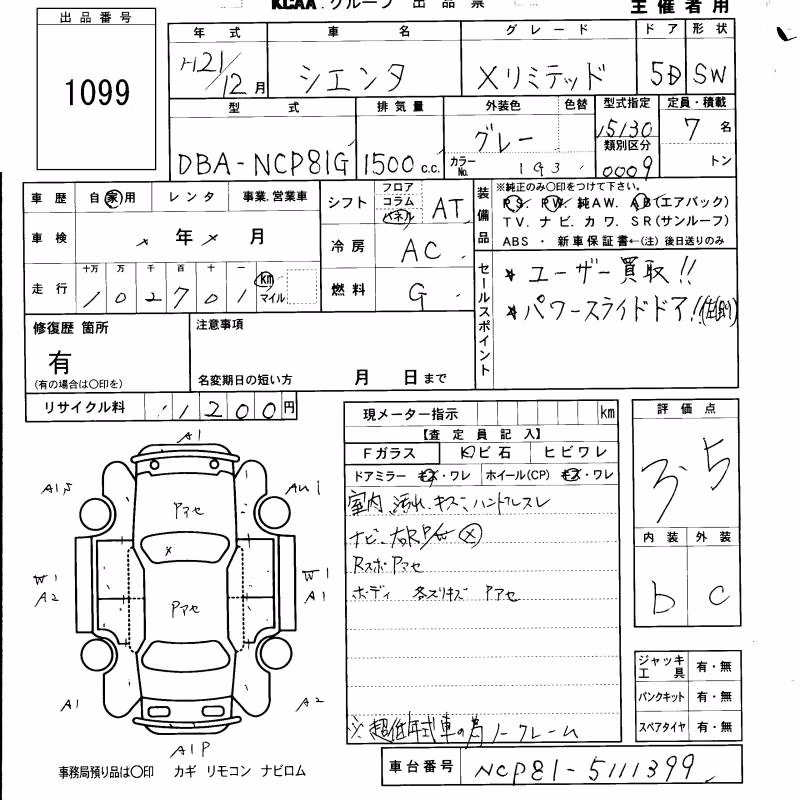 KCAA グループ 出品票
主催者用
出品番号
1099
年式 車名 グレード ドア 形状
H21/12月 シエンタ Xリミテッド 5D SW
型式 排気量 外装色 色替 型式指定 定員・積載
DBA-NCP81G 1500 c.c. グレー 15130 7名
カラーNo. 1G3 類別区分 0009 トン
車歴 自家用 レンタ 事業.営業車
シフト フロア コラム パネル AT
装備品 ※純正のみ○印をつけて下さい。
PS. PW. 純AW. AB(エアバック)
TV. ナビ. カワ. SR(サンルーフ)
ABS ・ 新車保証書←(注) 後日送りのみ
車検 × 年 × 月
冷房 AC
走行 十万 万 千 百 十 一
102701 km マイル
燃料 G
セールスポイント
* ユーザー買取!!
* パワースライドドア!!(左側)
修復歴 箇所
有
(有の場合は○印を)
注意事項
名変期日の短い方 月 日まで
リサイクル料 11200円
現メーター指示 km
【査定員記入】
Fガラス 凶ビ石 ヒビワレ
ドアミラー キズ・ワレ ホイール(CP) キズ・ワレ
室内 汚れ、キズ、ハンドルスレ
ナビ、
Rスポ Pアセ
ボディ 各ズリキズ Pアセ
※超低年式車の為ノークレーム
評価点
3.5
内装 外装
b C
A1
A15
Pアセ
×
W1
A2
W1
A1
Pアセ
A1
A2
A1P
ジャッキ工具 有・無
パンクキット 有・無
スペアタイヤ 有・無
事務局預り品は○印 カギ リモコン ナビロム
車台番号 NCP81-5111399